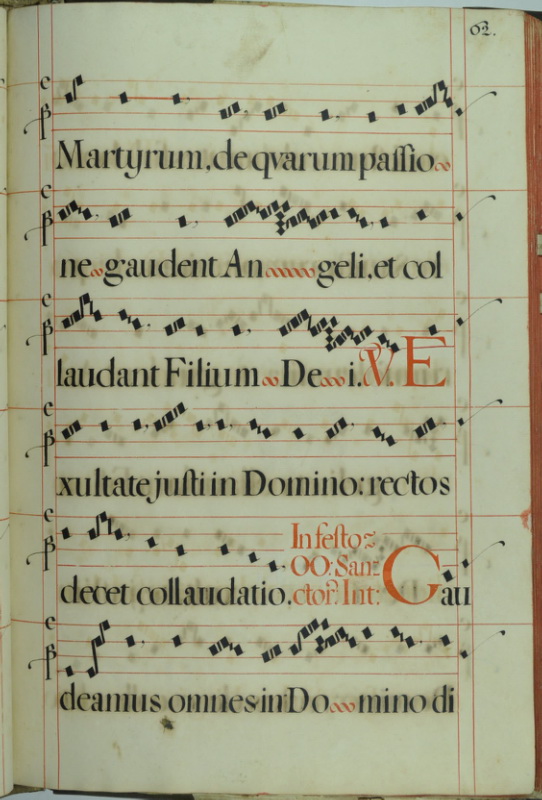 62.
Martyrum, de qvarum paſſio
ne gaudent An geli, et col
laudant Filium De i. V. E
xultate juſti in Domino: rectos
decet collaudatio. In feſto
OO: San=
ctor: Int: Gau
deamus omnes in Do mino di